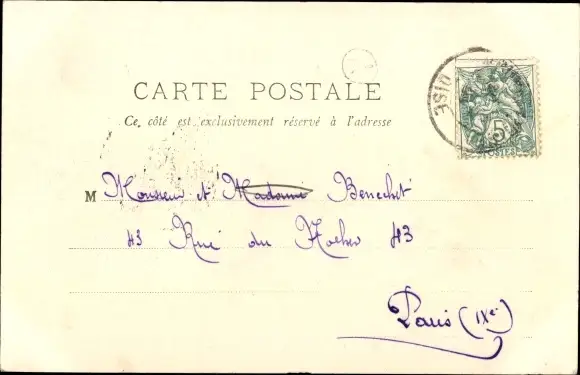 CARTE POSTALE
Ce côté est exclusivement réservé à l'adresse
OISE
5
POSTES
M Monsieur et Madame Benechet
43 Rue du Rocher 43
Paris (IXe)